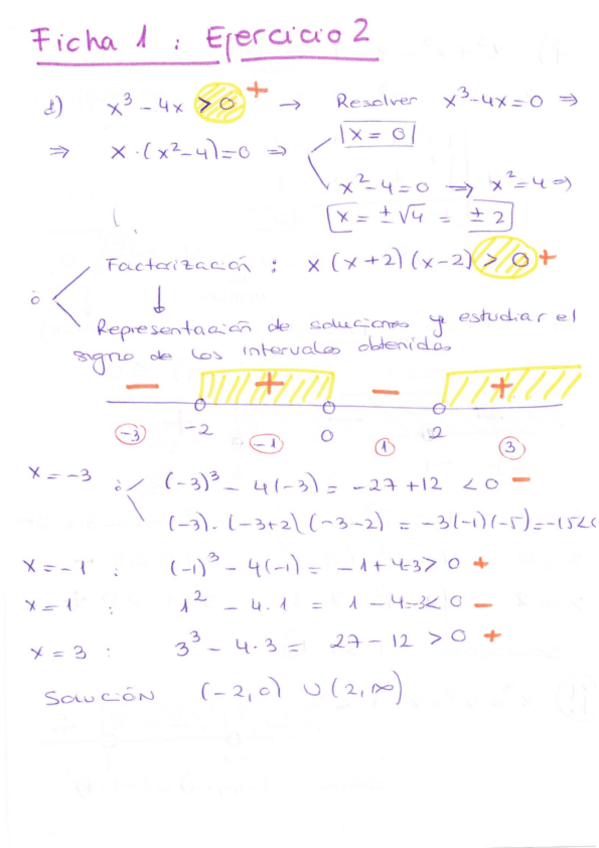 Ficha 1 : Ejercicio 2
d) x³ - 4x > 0 + → Resolver x³-4x=0 ⇒
⇒ x·(x²-4)=0 ⇒ x = 0
x²-4=0 → x²=4 ⇒
x = ±√4 = ±2
Factorización : x(x+2)(x-2) > 0 +
ó
Representación de soluciones y estudiar el
signo de los intervalos obtenidos
− + − +
-2 0 2
-3 -1 1 3
x=-3 ó (-3)³ - 4(-3) = -27+12 < 0 −
(-3)·(-3+2)(-3-2) = -3(-1)(-5)=-15<0
x=-1 : (-1)³ - 4(-1) = -1+4=3> 0 +
x=1 : 1² - 4·1 = 1-4=-3< 0 −
x=3 : 3³ - 4·3 = 27-12 > 0 +
Solución (-2,0) ∪ (2,∞)